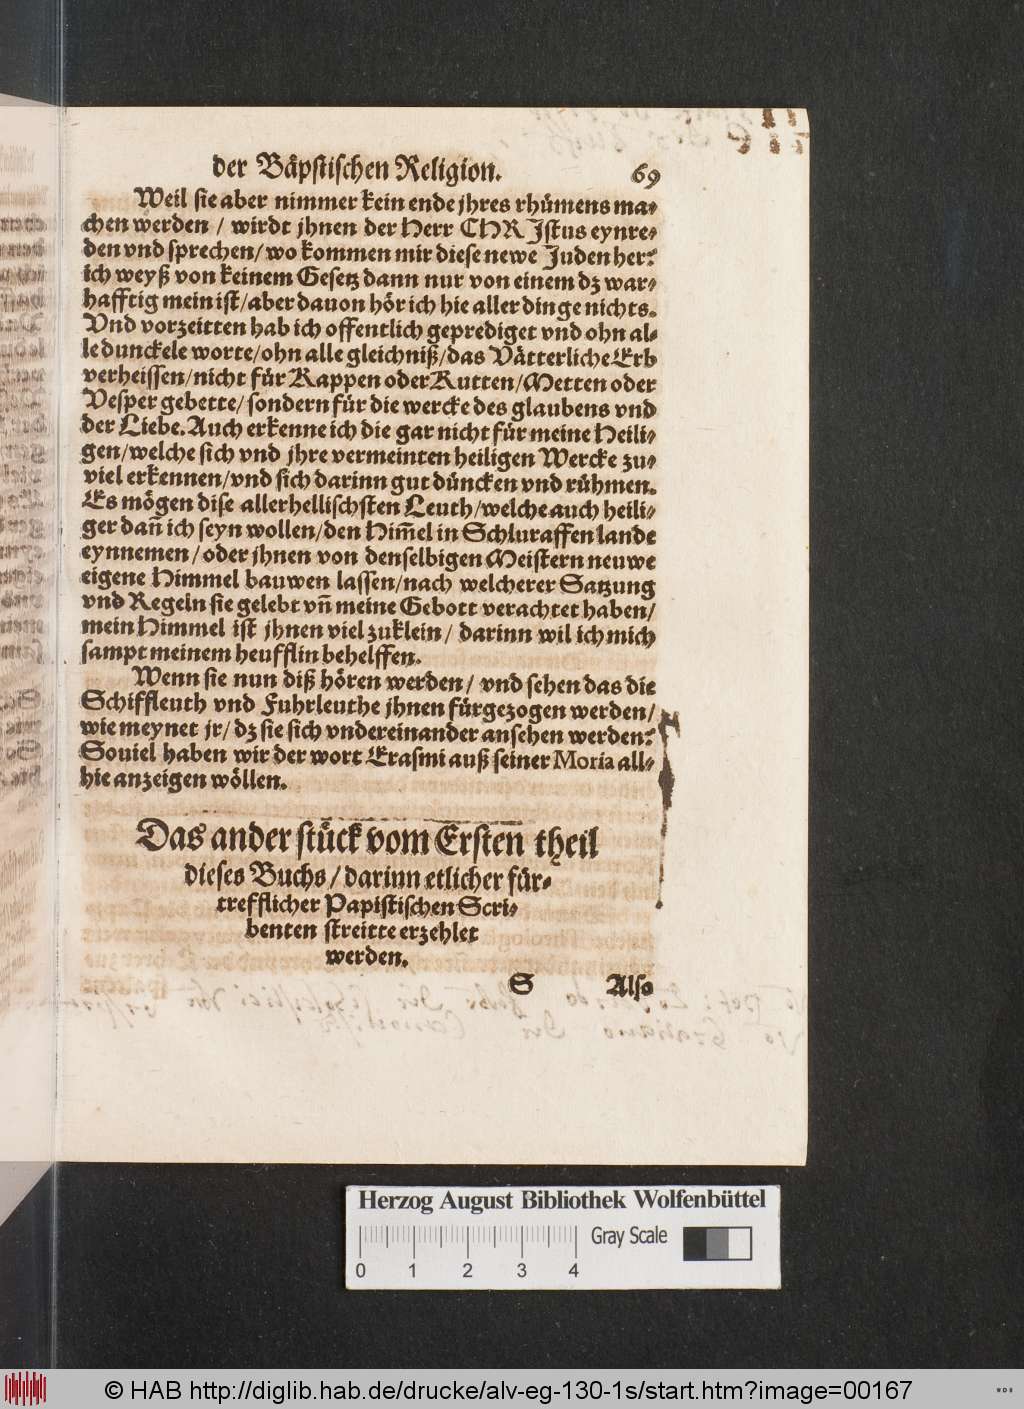 der Bäpstischen Religion. 69
Weil sie aber nimmer kein ende jhres rhümens ma-
chen werden / wirdt jhnen der Herr CHRJstus eynre-
den vnd sprechen/ wo kommen mir diese newe Juden her?
ich weyß von keinem Gesetz dann nur von einem dz war-
hafftig mein ist/ aber dauon hör ich hie aller dinge nichts.
Vnd vorzeitten hab ich offentlich geprediget vnd ohn al-
le dunckele worte/ohn alle gleichniß/das Vätterliche Erb
verheissen/nicht für Kappen oder Kutten/Metten oder
Vesper gebette/ sondern für die wercke des glaubens vnd
der Liebe. Auch erkenne ich die gar nicht für meine Heili-
gen/welche sich vnd jhre vermeinten heiligen Wercke zu-
viel erkennen/vnd sich darinn gut düncken vnd rühmen.
Es mögen dise allerhellischsten Leuth/welche auch heili-
ger dañ ich seyn wollen/den Him̃el in Schluraffen lande
eynnemen/oder jhnen von denselbigen Meistern neuwe
eigene Himmel bauwen lassen/nach welcherer Satzung
vnd Regeln sie gelebt vñ meine Gebott verachtet haben/
mein Himmel ist jhnen viel zuklein/ darinn wil ich mich
sampt meinem heufflin behelffen.
Wenn sie nun diß hören werden/ vnd sehen das die
Schiffleuth vnd Fuhrleuthe jhnen fürgezogen werden/
wie meynet jr/ dz sie sich vndereinander ansehen werden?
Souiel haben wir der wort Erasmi auß seiner Moria all-
hie anzeigen wöllen.
Das ander stück vom Ersten theil
dieses Buchs/darinn etlicher für-
trefflicher Papistischen Scri-
benten streitte erzehlet
werden.
S Also
Herzog August Bibliothek Wolfenbüttel
Gray Scale
0 1 2 3 4
© HAB http://diglib.hab.de/drucke/alv-eg-130-1s/start.htm?image=00167